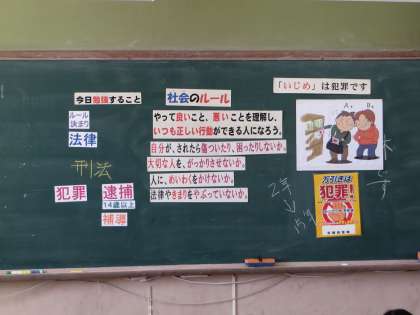 今日勉強すること
ルール
決まり
法律
刑法
犯罪
逮捕
14歳以上
補導
社会のルール
やって良いこと、悪いことを理解し、
いつも正しい行動ができる人になろう。
自分が、されたら傷ついたり、困ったりしないか。
大切な人を、がっかりさせないか。
人に、めいわくをかけないか。
法律やきまりをやぶっていないか。
「いじめ」は犯罪です
A
B
万引きは
犯罪!
2年